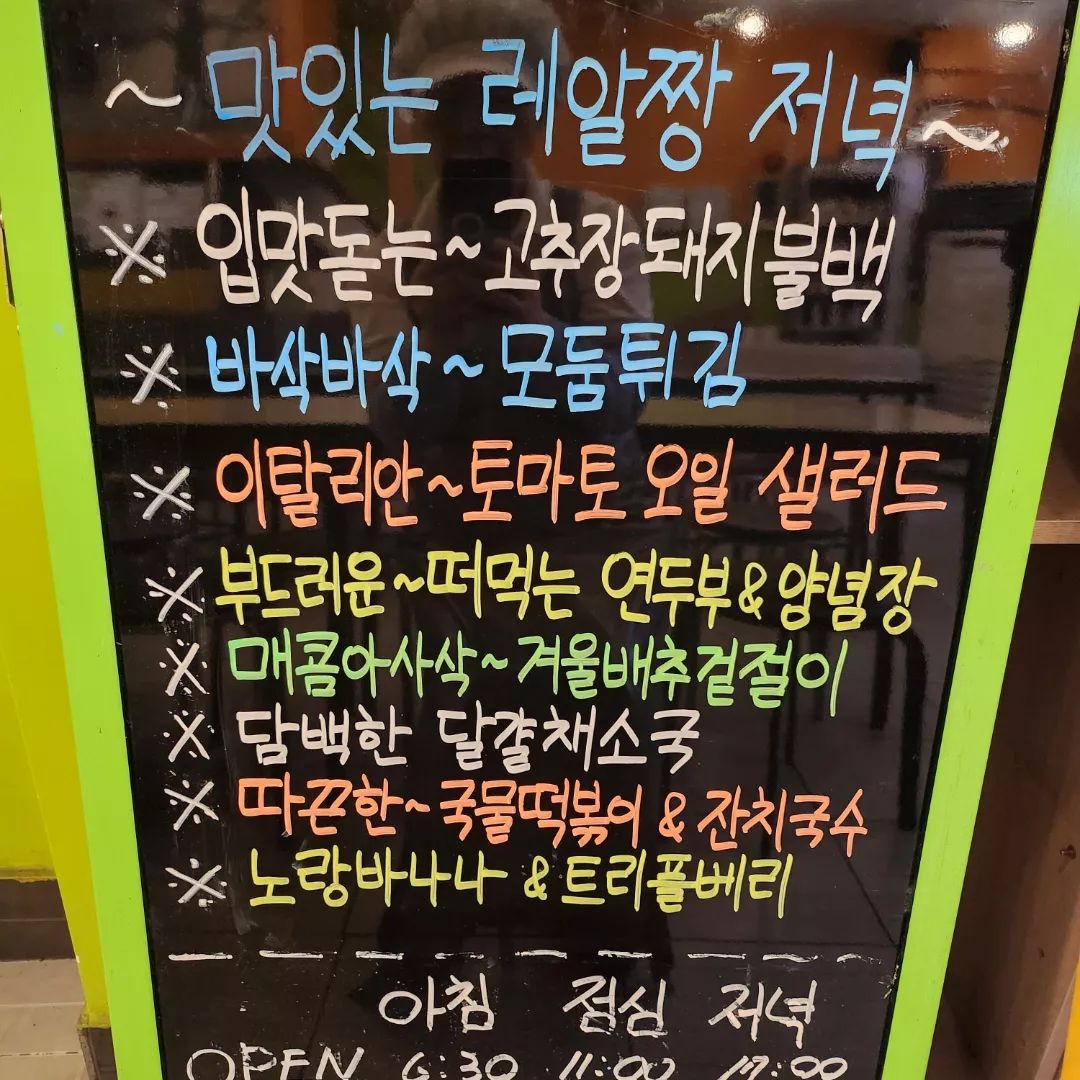 ~ 맛있는 레알짱 저녁 ~
※ 입맛돋는~ 고추장돼지불백
※ 바삭바삭~ 모둠튀김
※ 이탈리안~토마토 오일 샐러드
※ 부드러운~떠먹는 연두부 & 양념장
※ 매콤아사삭~ 겨울배추겉절이
※ 담백한 달걀채소국
※ 따끈한~ 국물떡볶이 & 잔치국수
※ 노랑바나나 & 트리플베리
아침 점심 저녁
OPEN 6:30 11:00 17:00